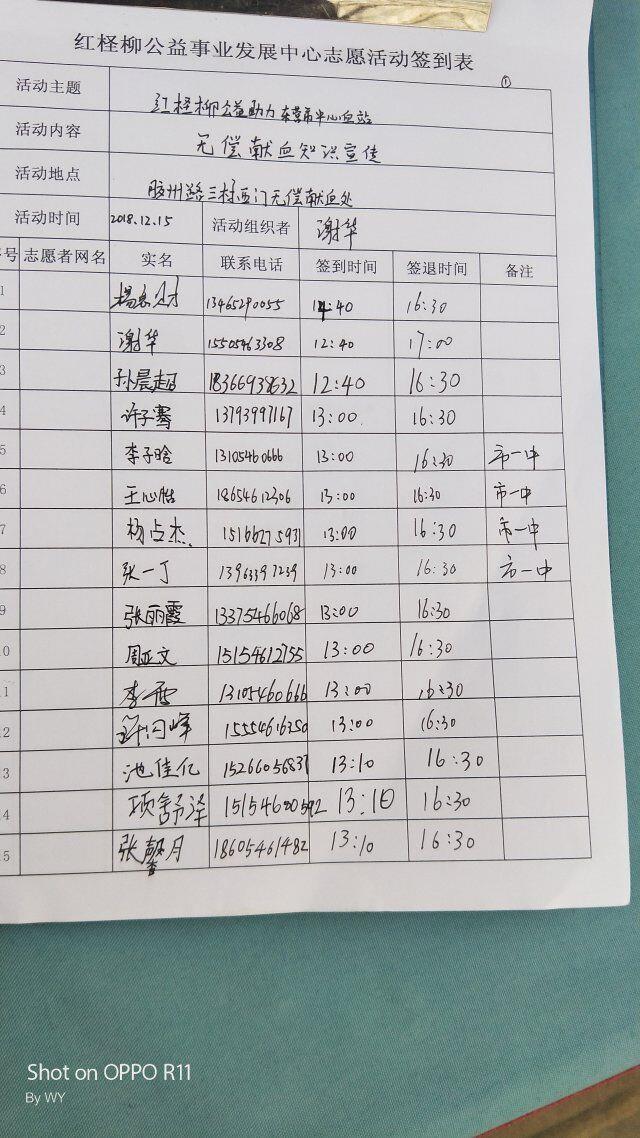 红柽柳公益事业发展中心志愿活动签到表
①
活动主题 红柽柳公益助力东营市中心血站
活动内容 无偿献血知识宣传
活动地点 胶州路三村西门无偿献血处
活动时间 2018.12.15 活动组织者 谢华
序号 志愿者网名 实名 联系电话 签到时间 签退时间 备注
1 13465290055 12:40 16:30
2 谢华 15505463308 12:40 17:00
3 孙晨超 18366938632 12:40 16:30
4 许子骞 13793997167 13:00 16:30
5 李子晗 13105460666 13:00 16:30 市一中
6 王心怡 18654612306 13:00 16:30 市一中
7 杨占杰 15166275931 13:00 16:30 市一中
8 张一丁 13963397239 13:00 16:30 市一中
9 张丽霞 13375466068 13:00 16:30
10 周亚文 15154612755 13:00 16:30
11 李 13105460666 13:00 16:30
12 15554616350 13:00 16:30
13 池佳亿 15266056837 13:10 16:30
14 项舒泽 15154600592 13:10 16:30
15 张馨月 18605461482 13:10 16:30
Shot on OPPO R11
By WY